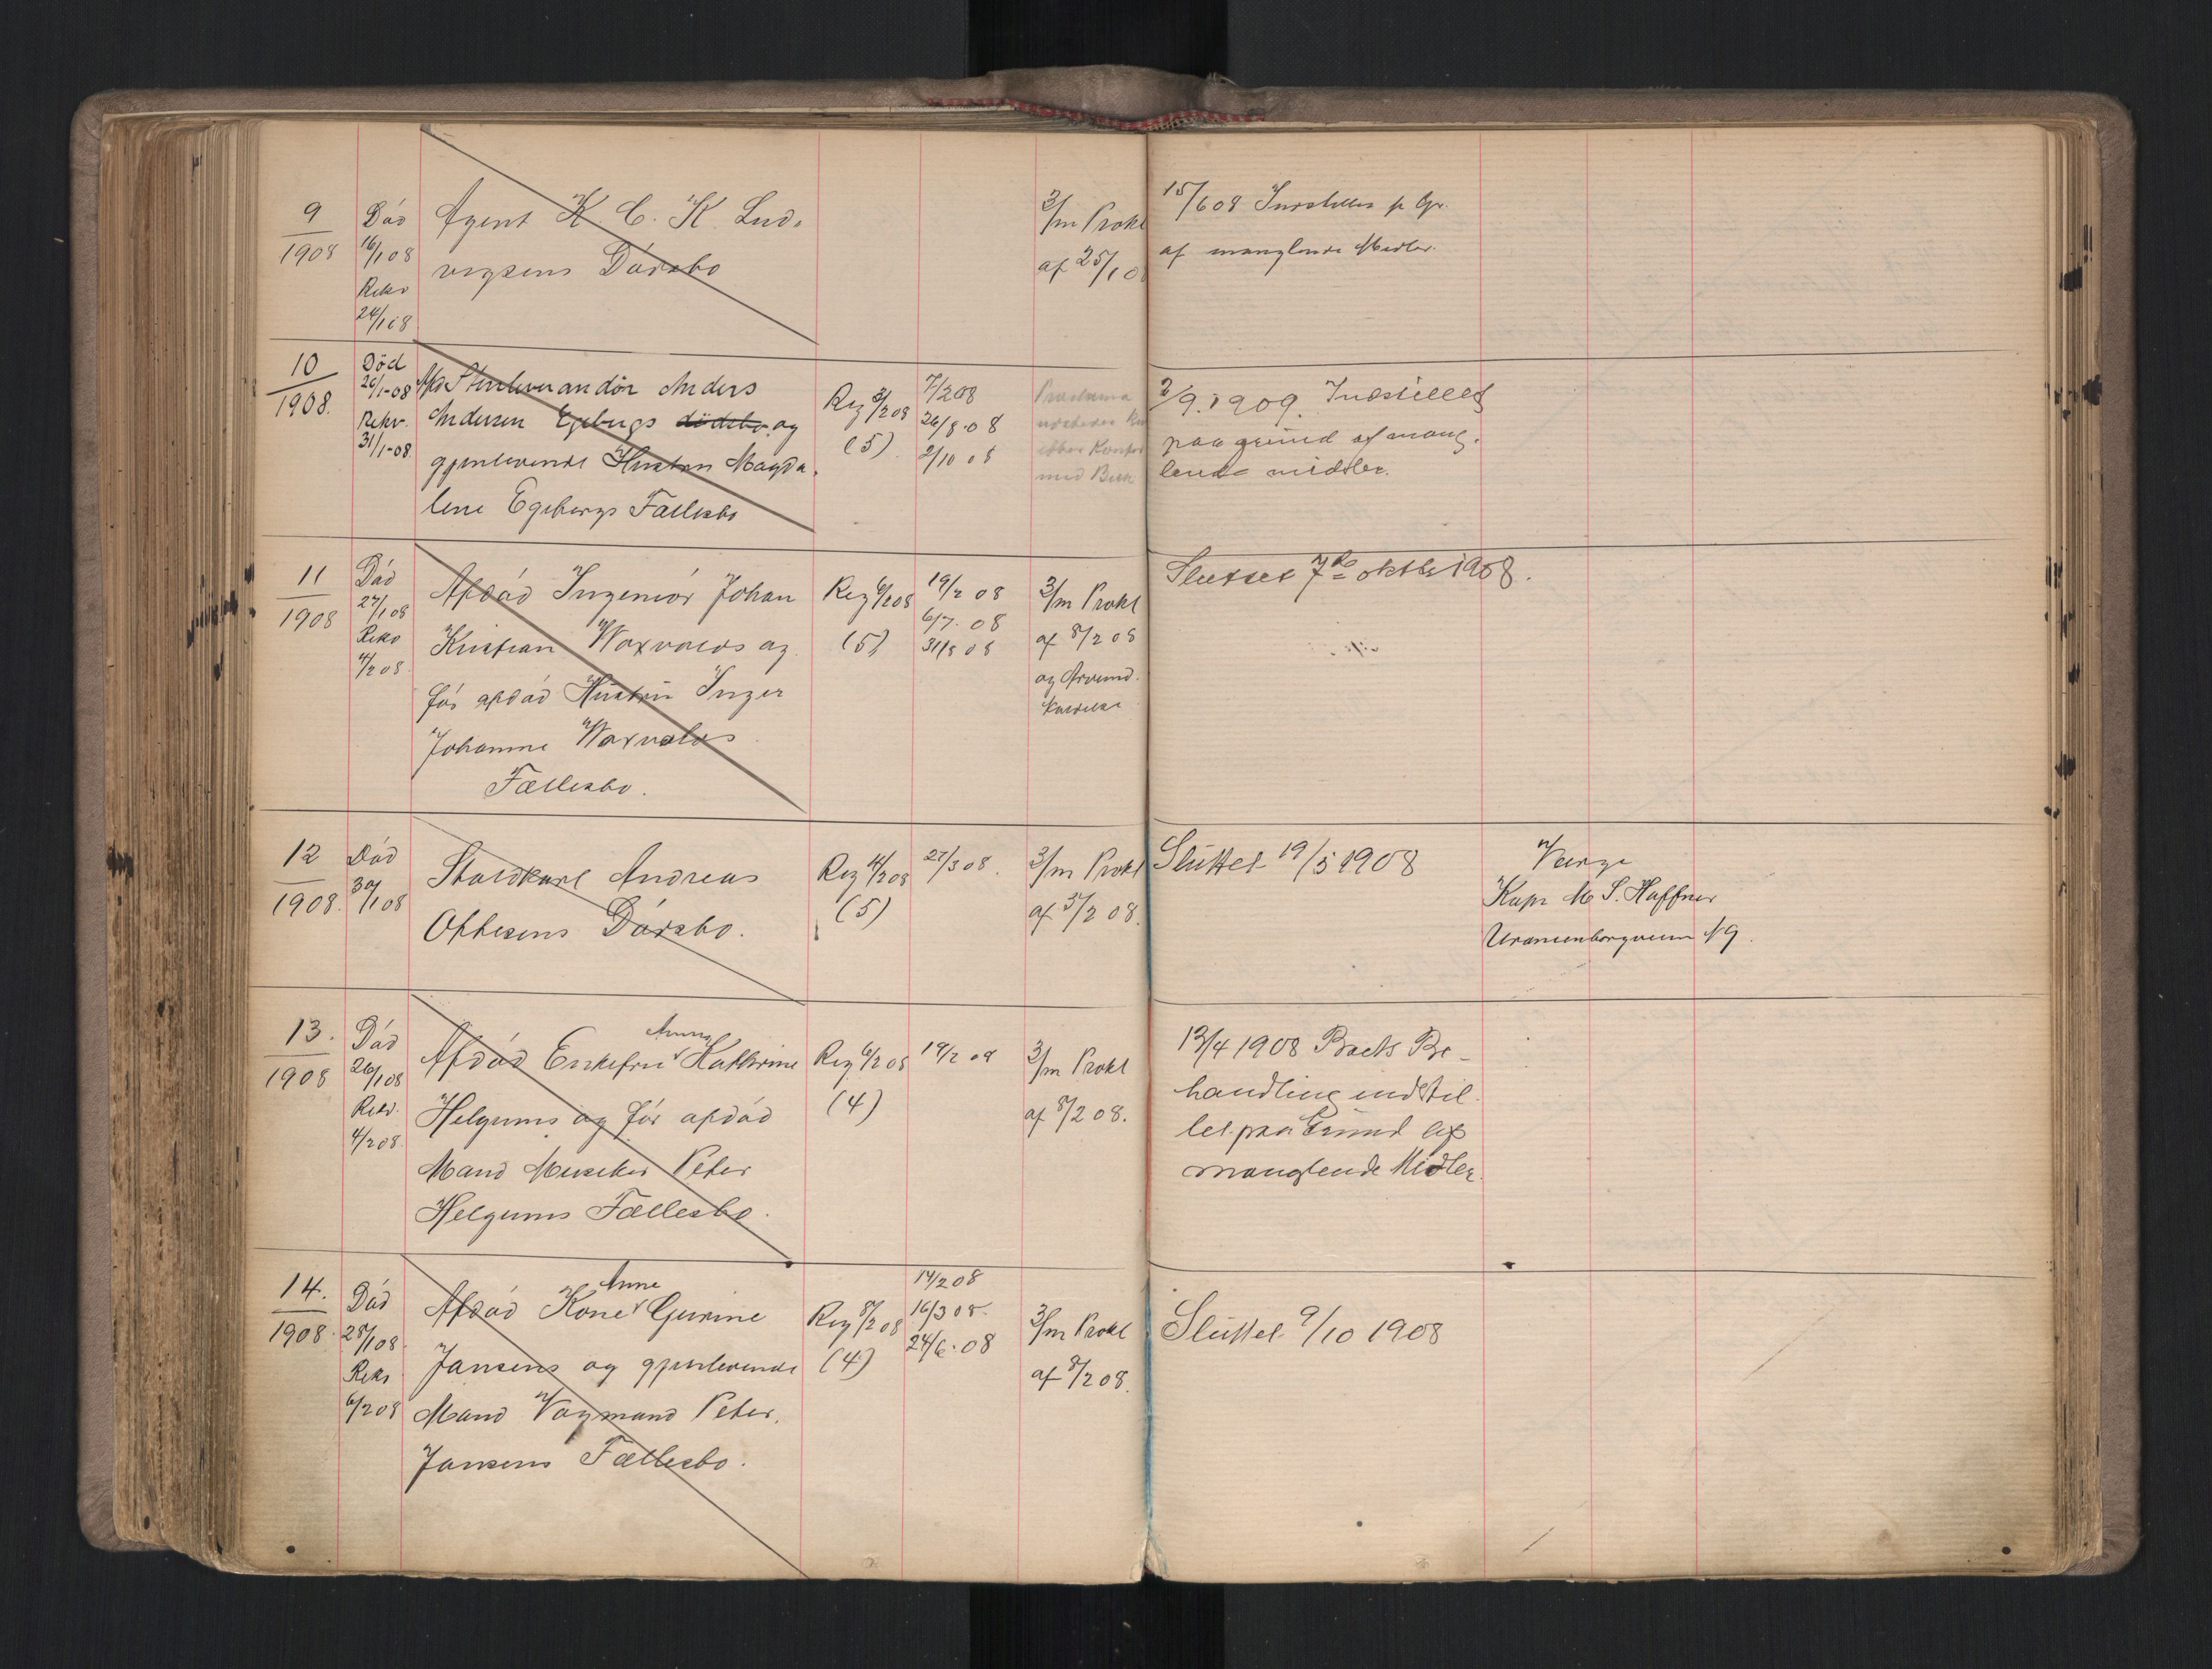 9
1908
Död
16/1 08
Rekv
24/1 08
Agent K. C. K. Lud-
vigsens Dödsbo
3/m Prokl
af 25/1 0
15/6 08 Indstilles p Gr.
af manglende Midler.
10
1908.
Död
26/1-08
Rekv.
31/1-08
Afd Stenleverandör Anders
Andersen Egebergs dödsbo og
gjenlevende Hustru Magda-
lene Egebergs Fællesbo
Reg 3/2 08
(5)
7/2 08
26/8.08
2/10 08
Proklama
med Beh
2/9.1909. Indstilles
paa grund af mang-
lende midler.
11
1908
Död
27/1 08
Rekv
4/2 08.
Afdöd Ingeniör Johan
Kristian Waxvolds og
för afdöd Hustru Inger
Johanne Waxvolds
Fællesbo.
Reg 6/2 08
(5)
19/2 08
6/7. 08
31/8 08
3/m Prokl
af 8/2 08
og
Sluttet 7de oktbr 1908.
12
1908.
Död
30/1 08
Staldkarl Andreas
Ottesens Dödsbo.
Reg 4/2 08
(5)
27/3 08.
3/m Prokl
af 5/2 08.
Sluttet 19/5 1908
Verge
Kapt M S. Haffner
Uranienborgveien 19.
13.
1908
Död
26/1 08
Rekv.
4/2 08
Anna
Afdöd Enkefru Kathrine
Helgums og för afdöd
Mand Musiker Peter
Helgums Fællesbo.
Reg 6/2 08
(4)
19/2 08
3/m Prokl
af 8/2 08.
13/4 1908 Boets Be-
handling indstil-
let paa Grund af
manglende Midler.
14.
1908.
Död
28/1 08.
Rekv
6/2 08
Anne
Afdöd Kone Gurine
Jansens og gjenlevende
Mand Vognmand Peter
Jansens Fællesbo.
Reg 8/2 08
(4)
14/2 08
16/3 08.
24/6.08
3/m Prokl
af 8/2 08.
Sluttet 9/10 1908